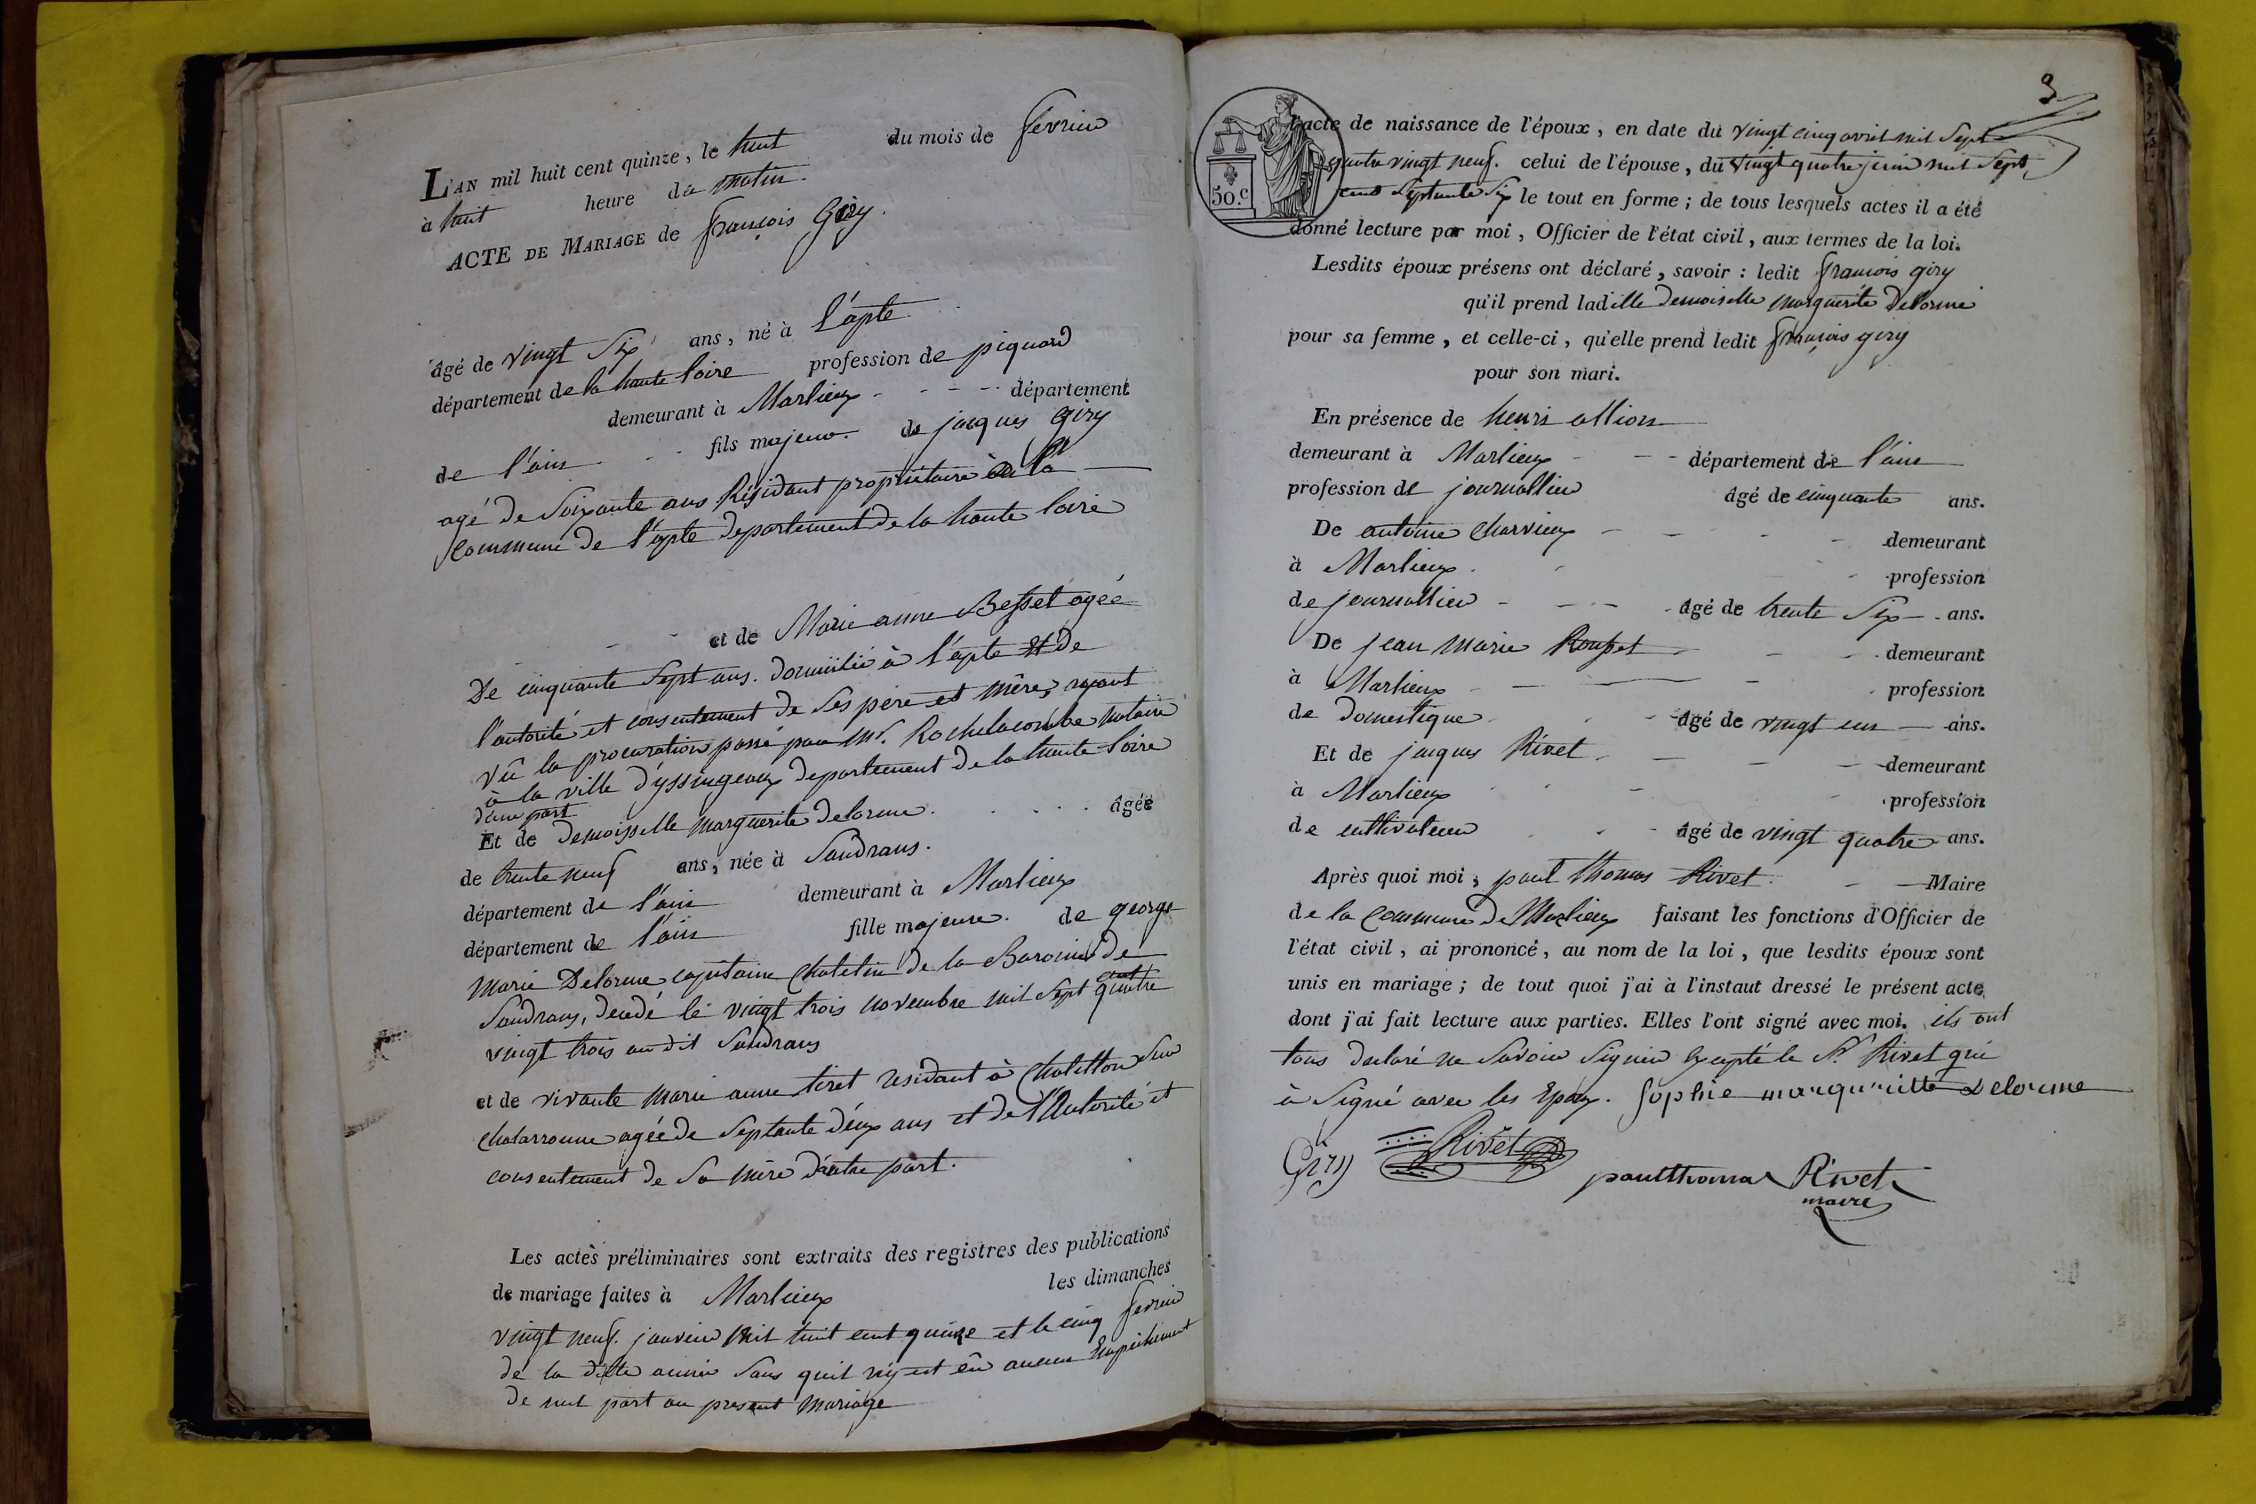 L'AN mil huit cent quinze, le huit du mois de fevrier
à huit heure du matin.
ACTE DE MARIAGE de françois Giry.
âgé de vingt Six ans, né à l'apte
département de la haute loire profession de piquard
demeurant à Marlieux département
de l'ain fils majeur. de jacques Giry
agé de Soixante ans Résidant propriétaire à la
commune de l'apte departement de la haute loire
et de Marie anne Besset agée
De cinquante Sept ans. domicilié à l'apte et de
l'autorité et consentement de Ses père et mère, ayant
vû la procuration passé par Mr. Rochelacombe notaire
à la ville d'yssingeaux departement de la haute loire
d'une part
Et de Demoisselle marguerite delorme. âgée
de trente neuf ans, née à Sandrans.
département de l'ain demeurant à Marlieux
département de l'ain fille majeure. de george
marie Delorme capitaine chatelin de la Baronie de
Sandrans, decedé le vingt trois novembre mil sept cent quatre
vingt trois au dit Sandrans
et de vivante marie anne tiret residant à Chatillon Sur
chalaronne agée de Septante deux ans et de l'Autorité et
consentement de Sa mère d'autre part.
Les actes préliminaires sont extraits des registres des publications
de mariage faites à Marlieux les dimanches
vingt neuf. janvier mil huit cent quinze et le cinq fevrier
de la dite année Sans quil n'y est eû aucun Empêchement
de nul part au present mariage
3
l'acte de naissance de l'époux, en date du vingt cinq avril mil Sept
quatre vingt neuf. celui de l'épouse, du vingt quatre juin mil Sept
cent Septante Six le tout en forme; de tous lesquels actes il a été
50.c
donné lecture par moi, Officier de l'état civil, aux termes de la loi.
Lesdits époux présens ont déclaré, savoir: ledit françois giry
qu'il prend ladille demoiselle marguerite Delorme
pour sa femme, et celle-ci, qu'elle prend ledit françois giry
pour son mari.
En présence de henri allion
demeurant à Marlieux département de l'ain
profession de journallier âgé de cinquante ans.
De antoine charvieux demeurant
à Marlieux. profession
de journallier âgé de trente Six ans.
De jean marie Rousset demeurant
à Marlieux profession
de domestique âgé de vingt un ans.
Et de jacques Rivet demeurant
à Marlieux profession
de cultivateur âgé de vingt quatre ans.
Après quoi moi, paul thomas Rivet Maire
de la Commune de Marlieux faisant les fonctions d'Officier de
l'état civil, ai prononcé, au nom de la loi, que lesdits époux sont
unis en mariage; de tout quoi j'ai à l'instaut dressé le présent acte
dont j'ai fait lecture aux parties. Elles l'ont signé avec moi. ils ont
tous declaré ne Savoir Signer Excepté le Sr. Rivet qui
à Signé avec les Epoux. Sophie marguritte Delorme
Giry Rivet
paulthomas Rivet
maire